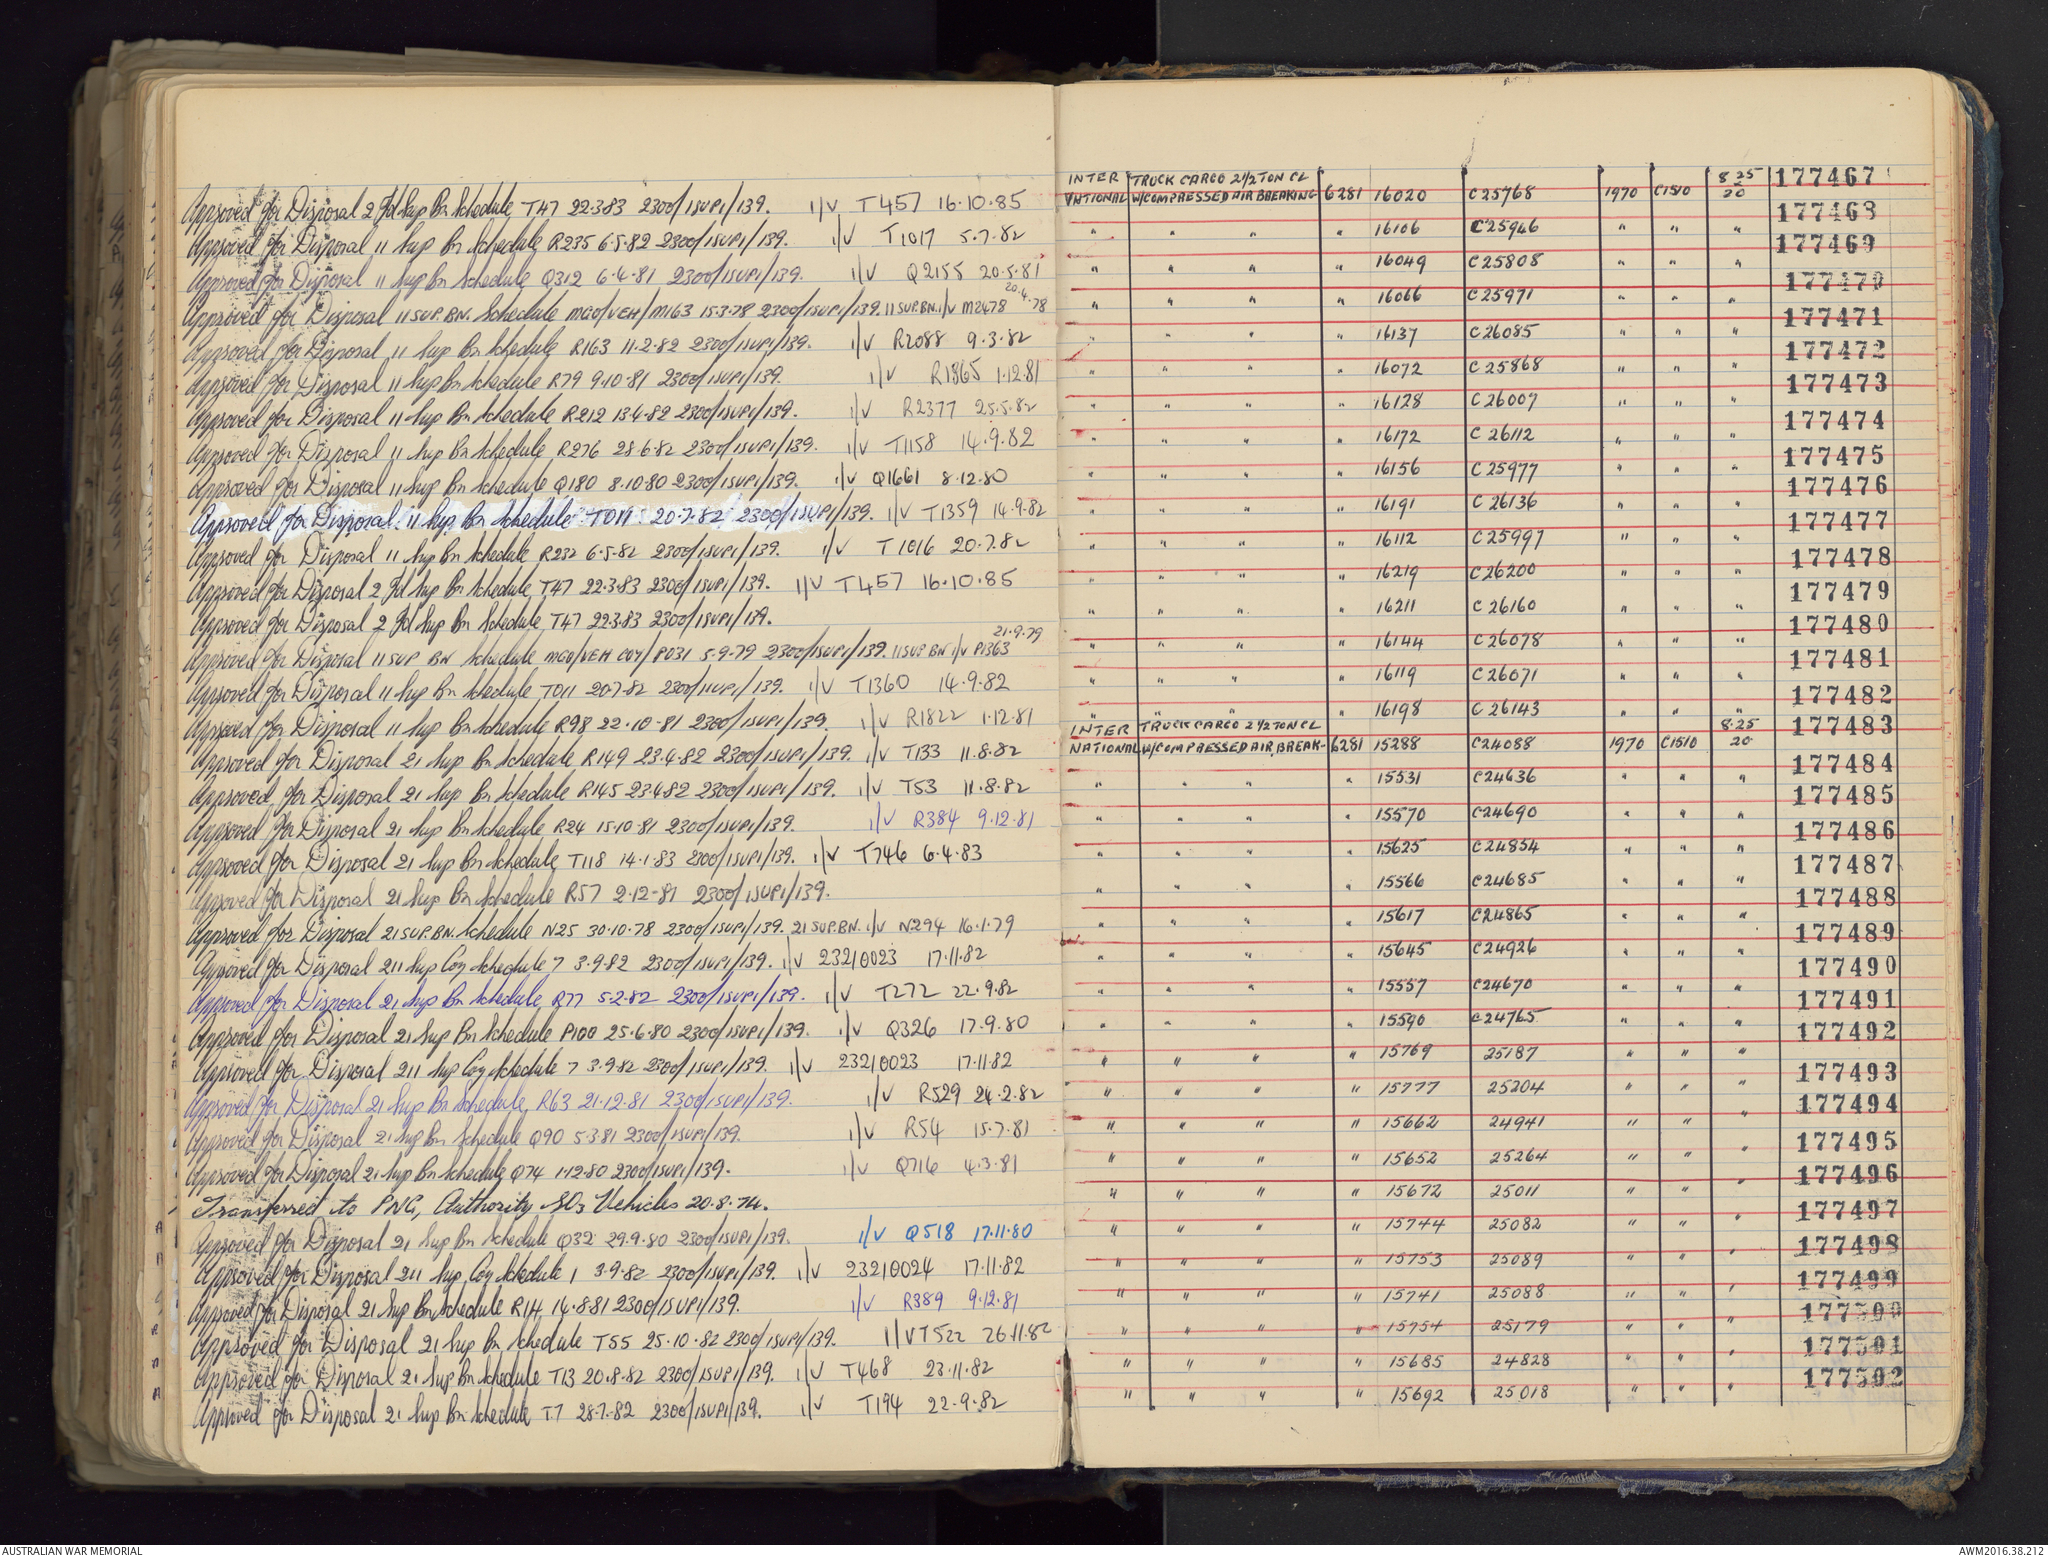 Approved for Disposal 2 Fd Sup Bn Schedule T47 22.3.83 2300/1SUP1/139. I/V T457 16.10.85
Approved for Disposal 11 Sup Bn Schedule R235 6.5.82 2300/1SUP1/139. I/V T1017 5.7.82
Approved for Disposal 11 Sup Bn Schedule Q312 6.4.81 2300/1SUP1/139. I/V Q2155 20.5.81
Approved for Disposal 11 SUP. BN. Schedule MGO/VEH/M163 15.3.78 2300/1SUP1/139. 11 SUP.BN. I/V M2478 20.4.78
Approved for Disposal 11 Sup Bn Schedule R163 11.2.82 2300/1SUP1/139. I/V R2088 9.3.82
Approved for Disposal 11 Sup Bn Schedule R79 9.10.81 2300/1SUP1/139. I/V R1865 1.12.81
Approved for Disposal 11 Sup Bn Schedule R212 13.4.82 2300/1SUP1/139. I/V R2377 25.5.82
Approved for Disposal 11 Sup Bn Schedule R276 28.6.82 2300/1SUP1/139. I/V T1158 14.9.82
Approved for Disposal 11 Sup Bn Schedule Q180 8.10.80 2300/1SUP1/139. I/V Q1661 8.12.80
Approved for Disposal 11 Sup Bn Schedule T011 20.7.82 2300/1SUP1/139. I/V T1359 14.9.82
Approved for Disposal 11 Sup Bn Schedule R232 6.5.82 2300/1SUP1/139. I/V T1016 20.7.82
Approved for Disposal 2 Fd Sup Bn Schedule T47 22.3.83 2300/1SUP1/139. I/V T457 16.10.85
Approved for Disposal 2 Fd Sup Bn Schedule T47 22.3.83 2300/1SUP1/139.
Approved for Disposal 11 SUP BN Schedule MGO/VEH COY/P031 5.9.79 2300/1SUP1/139. 11 SUP BN I/V P1363 21.9.79
Approved for Disposal 11 Sup Bn Schedule T011 20.7.82 2300/1SUP1/139. I/V T1360 14.9.82
Approved for Disposal 11 Sup Bn Schedule R98 22.10.81 2300/1SUP1/139. I/V R1822 1.12.81
Approved for Disposal 21 Sup Bn Schedule R149 23.4.82 2300/1SUP1/139. I/V T133 11.8.82
Approved for Disposal 21 Sup Bn Schedule R145 23.4.82 2300/1SUP1/139. I/V T53 11.8.82
Approved for Disposal 21 Sup Bn Schedule R24 15.10.81 2300/1SUP1/139. I/V R384 9.12.81
Approved for Disposal 21 Sup Bn Schedule T118 14.1.83 2300/1SUP1/139. I/V T746 6.4.83
Approved for Disposal 21 Sup Bn Schedule R57 2.12.81 2300/1SUP1/139.
Approved for Disposal 21 SUP.BN. Schedule N25 30.10.78 2300/1SUP1/139. 21 SUP.BN. I/V N294 16.1.79
Approved for Disposal 211 Sup Coy Schedule 7 3.9.82 2300/1SUP1/139. I/V 23210023 17.11.82
Approved for Disposal 21 Sup Bn Schedule R77 5.2.82 2300/1SUP1/139. I/V T272 22.9.82
Approved for Disposal 21 Sup Bn Schedule P100 25.6.80 2300/1SUP1/139. I/V Q326 17.9.80
Approved for Disposal 211 Sup Coy Schedule 7 3.9.82 2300/1SUP1/139. I/V 23210023 17.11.82
Approved for Disposal 21 Sup Bn Schedule R63 21.12.81 2300/1SUP1/139. I/V R529 24.2.82
Approved for Disposal 21 Sup Bn Schedule Q90 5.3.81 2300/1SUP1/139. I/V R54 15.7.81
Approved for Disposal 21 Sup Bn Schedule Q74 1.12.80 2300/1SUP1/139. I/V Q716 4.3.81
Transferred to PNG, Authority SO3 Vehicles 20.8.74.
Approved for Disposal 21 Sup Bn Schedule Q32 29.9.80 2300/1SUP1/139. I/V Q518 17.11.80
Approved for Disposal 211 Sup Coy Schedule 1 3.9.82 2300/1SUP1/139. I/V 23210024 17.11.82
Approved for Disposal 21 Sup Bn Schedule R14 14.8.81 2300/1SUP1/139. I/V R389 9.12.81
Approved for Disposal 21 Sup Bn Schedule T55 25.10.82 2300/1SUP1/139. I/V T522 26.11.82
Approved for Disposal 21 Sup Bn Schedule T13 20.8.82 2300/1SUP1/139. I/V T468 23.11.82
Approved for Disposal 21 Sup Bn Schedule T.7 28.7.82 2300/1SUP1/139. I/V T194 22.9.82
INTER TRUCK CARGO 2½ TON CL 8.25 177467
NATIONAL W/COMPRESSED AIR BREAKING 6281 16020 C25768 1970 C1510 20
" " " " 16106 C25946 " " " 177468
" " " " 16049 C25808 " " " 177469
" " " " 16066 C25971 " " " 177470
" " " " 16137 C26085 " " " 177471
" " " " 16072 C25868 " " " 177472
" " " " 16128 C26007 " " " 177473
" " " " 16172 C26112 " " " 177474
" " " " 16156 C25977 " " " 177475
" " " " 16191 C26136 " " " 177476
" " " " 16112 C25997 " " " 177477
" " " " 16219 C26200 " " " 177478
" " " " 16211 C26160 " " " 177479
" " " " 16144 C26078 " " " 177480
" " " " 16119 C26071 " " " 177481
" " " " 16198 C26143 " " " 177482
INTER TRUCK CARGO 2½ TON CL 8.25 177483
NATIONAL W/COMPRESSED AIR BREAK- 6281 15288 C24088 1970 C1510 20
" " " " 15531 C24636 " " " 177484
" " " " 15570 C24690 " " " 177485
" " " " 15625 C24854 " " " 177486
" " " " 15566 C24685 " " " 177487
" " " " 15617 C24865 " " " 177488
" " " " 15645 C24926 " " " 177489
" " " " 15557 C24670 " " " 177490
" " " " 15590 C24765 " " " 177491
" " " " 15769 25187 " " " 177492
" " " " 15777 25204 " " " 177493
" " " " 15662 24941 " " " 177494
" " " " 15652 25264 " " " 177495
" " " " 15672 25011 " " " 177496
" " " " 15744 25082 " " " 177497
" " " " 15753 25089 " " " 177498
" " " " 15741 25088 " " " 177499
" " " " 15754 25179 " " " 177500
" " " " 15685 24828 " " " 177501
" " " " 15692 25018 " " " 177502
AUSTRALIAN WAR MEMORIAL
AWM2016.38.212